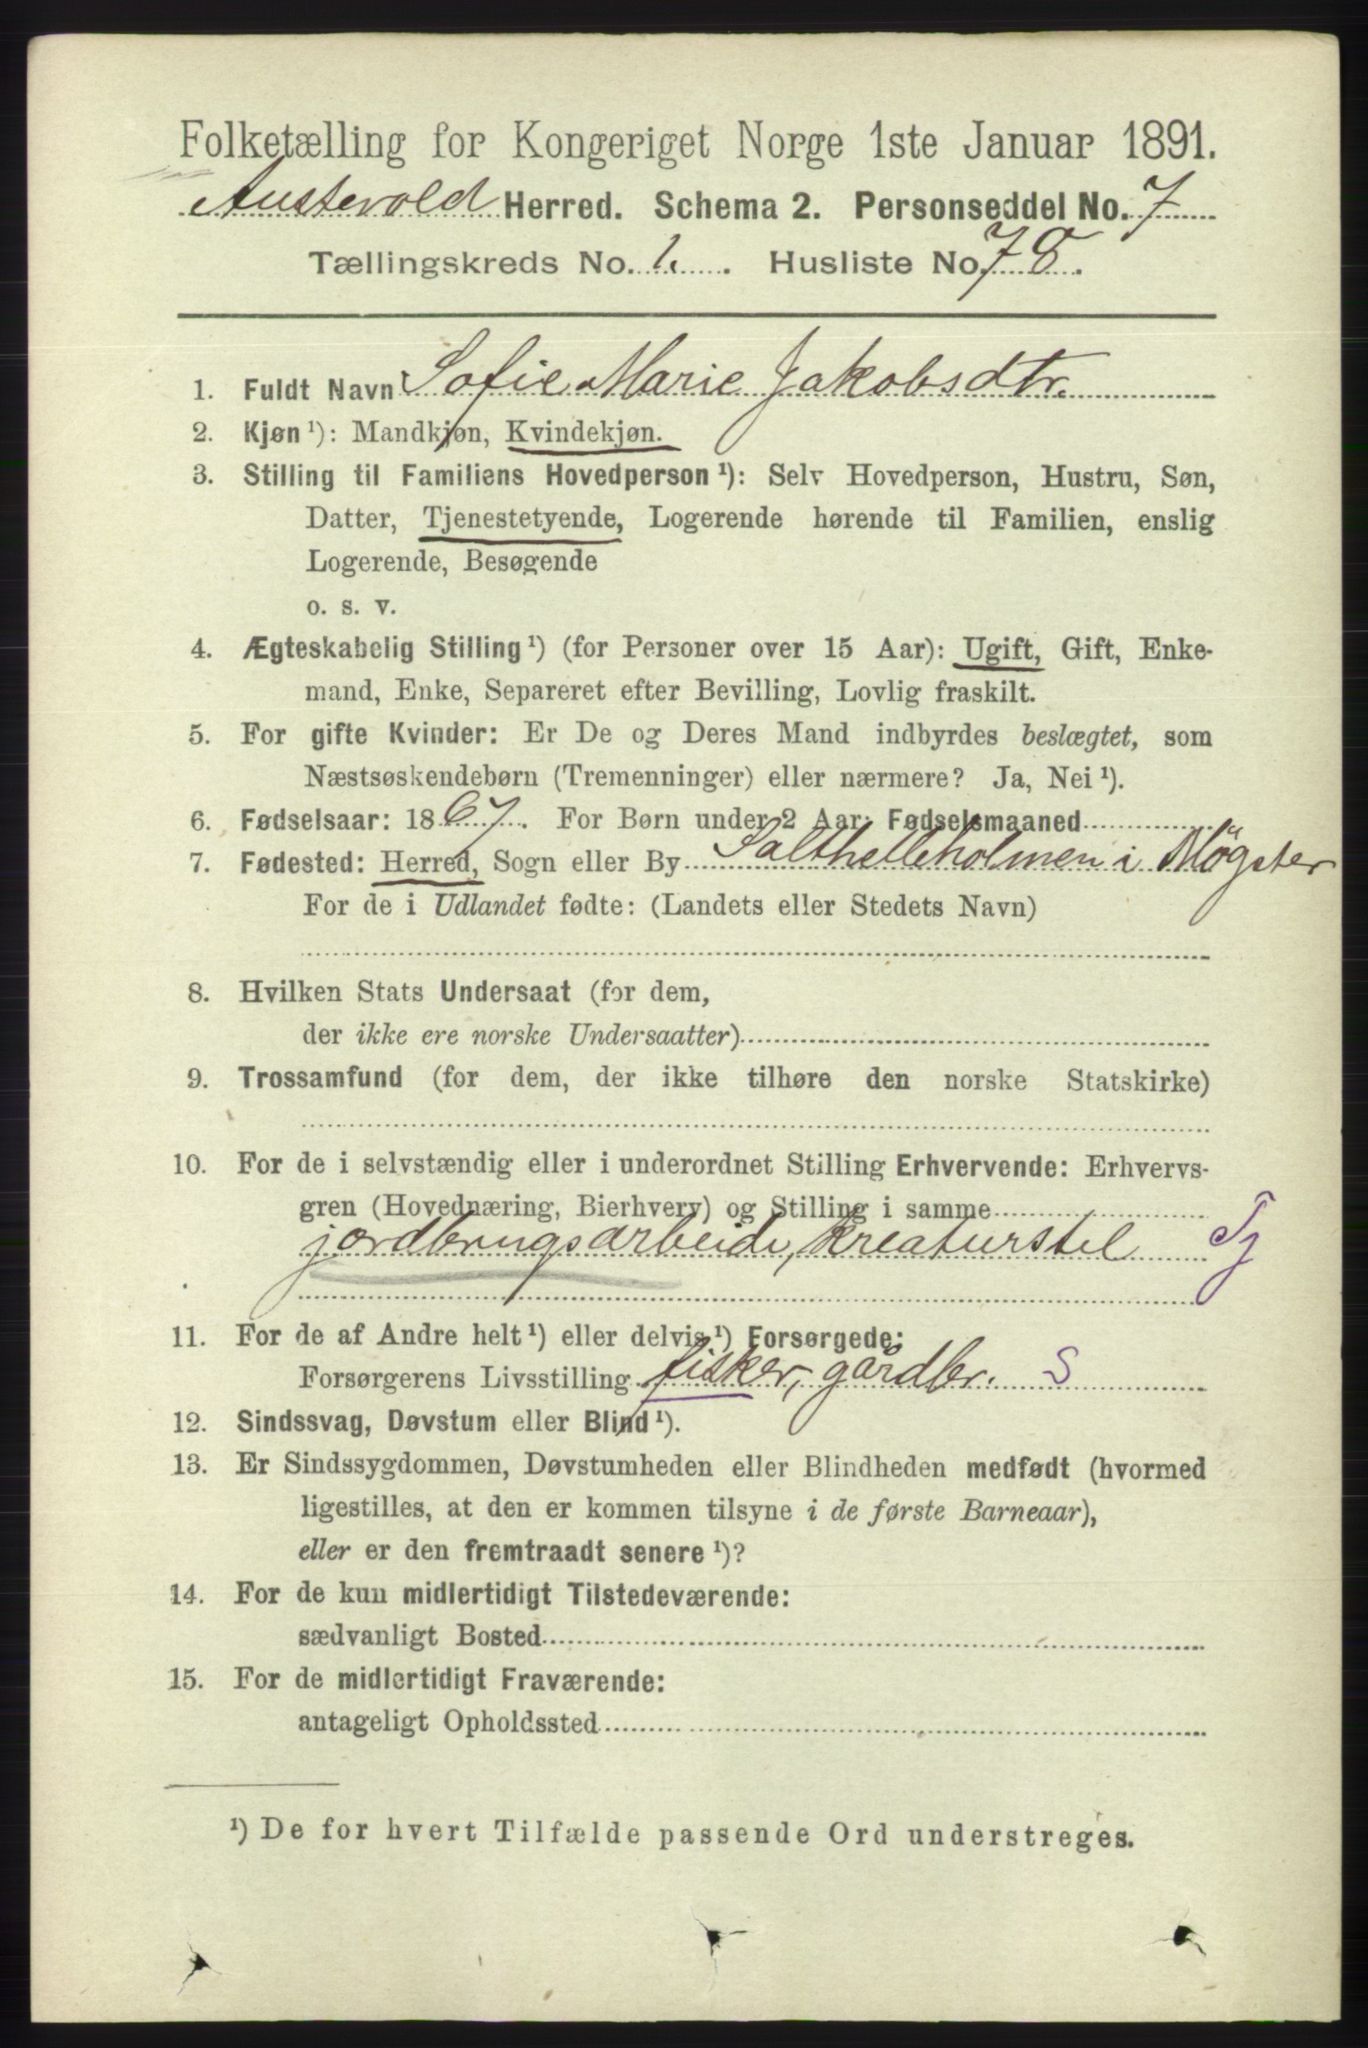 Folketælling for Kongeriget Norge 1ste Januar 1891.
Austevold Herred. Schema 2. Personseddel No. 7
Tællingskreds No. 1. Husliste No. 78.
1. Fuldt Navn Sofie Marie Jakobsdtr.
2. Kjøn ¹): Mandkjøn, Kvindekjøn.
3. Stilling til Familiens Hovedperson ¹): Selv Hovedperson, Hustru, Søn,
Datter, Tjenestetyende, Logerende hørende til Familien, enslig
Logerende, Besøgende
o. s. v.
4. Ægteskabelig Stilling ¹) (for Personer over 15 Aar): Ugift, Gift, Enke-
mand, Enke, Separeret efter Bevilling, Lovlig fraskilt.
5. For gifte Kvinder: Er De og Deres Mand indbyrdes beslægtet, som
Næstsøskendebørn (Tremenninger) eller nærmere? Ja, Nei ¹).
6. Fødselsaar: 1867. For Børn under 2 Aar: Fødselsmaaned
7. Fødested: Herred, Sogn eller By Salthelleholmen i Møgster
For de i Udlandet fødte: (Landets eller Stedets Navn)
8. Hvilken Stats Undersaat (for dem,
der ikke ere norske Undersaatter)
9. Trossamfund (for dem, der ikke tilhøre den norske Statskirke)
10. For de i selvstændig eller i underordnet Stilling Erhvervende: Erhvervs-
gren (Hovednæring, Bierhverv) og Stilling i samme
jordbrugsarbeide, kreaturstel Tj
11. For de af Andre helt ¹) eller delvis ¹) Forsørgede:
Forsørgerens Livsstilling fisker, gårdbr. S
12. Sindssvag, Døvstum eller Blind ¹).
13. Er Sindssygdommen, Døvstumheden eller Blindheden medfødt (hvormed
ligestilles, at den er kommen tilsyne i de første Barneaar),
eller er den fremtraadt senere ¹)?
14. For de kun midlertidigt Tilstedeværende:
sædvanligt Bosted
15. For de midlertidigt Fraværende:
antageligt Opholdssted
¹) De for hvert Tilfælde passende Ord understreges.